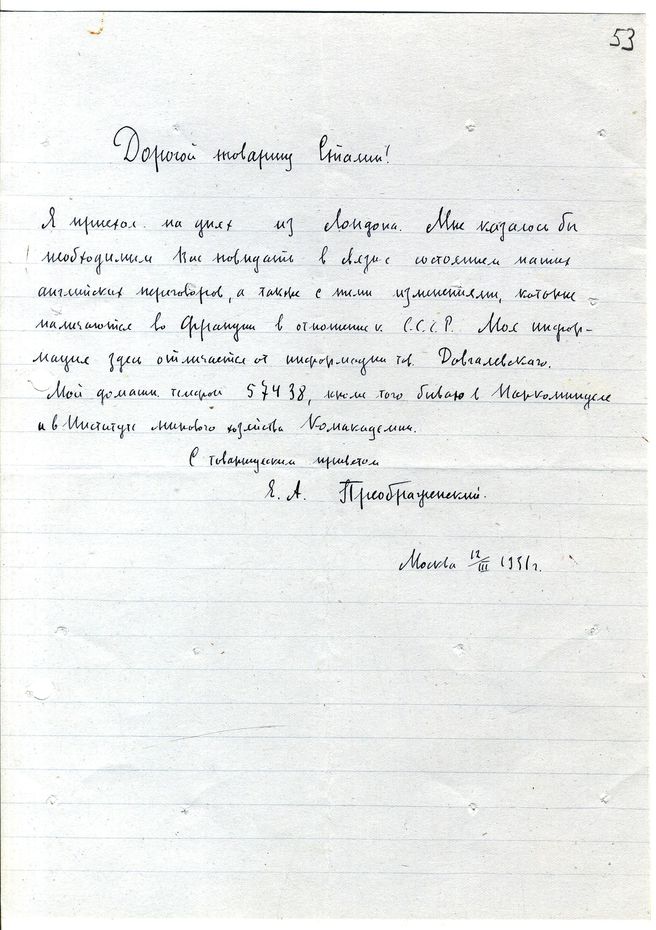 53
Дорогой товарищ Сталин!
Я приехал на днях из Лондона. Мне казалось бы
необходимым Вас повидать в связи с состоянием наших
английских переговоров, а также с теми изменениями, которые
намечаются во Франции в отношении С.С.С.Р. Моя инфор-
мация здесь отличается от информации тов. Довгалевского.
Мой домашн. телефон 57438, кроме того бываю в Наркоминделе
и в Институте мирового хозяйства Комакадемии.
С товарищеским приветом
Е. А. Преображенский.
Москва 12/III 1931г.